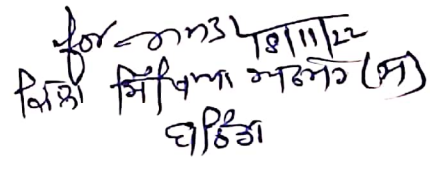 18/11/22
ਜ਼ਿਲ੍ਹਾ ਸਿੱਖਿਆ ਅਫਸਰ (ਸ)
ਬਠਿੰਡਾ